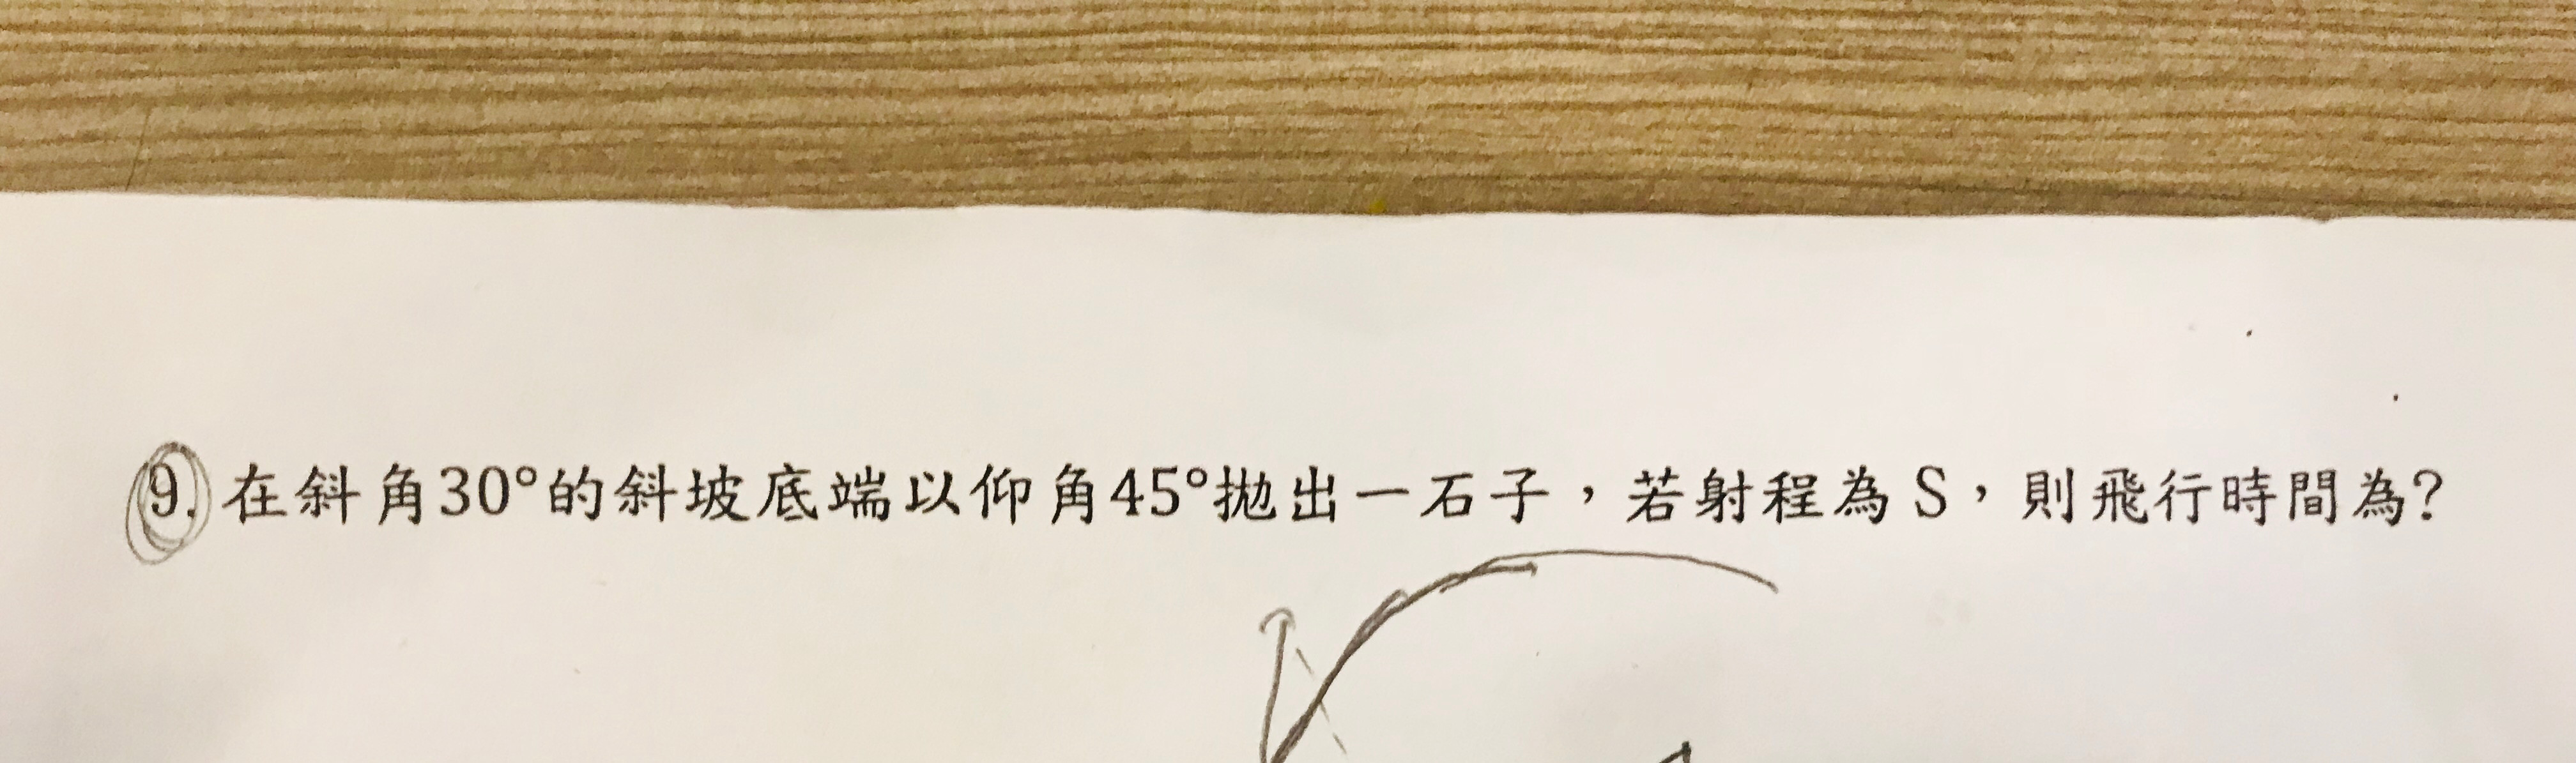 9. 在斜角30°的斜坡底端以仰角45°拋出一石子，若射程為 S，則飛行時間為?